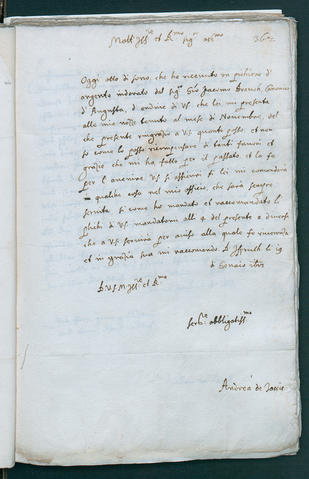 Molt' Ill.re et R.mo Sig.r oss.mo
Oggi otto di sono, che ho riceuuto un pichiere di
argento indorato dal sig.r Gio Jacomo
d'Augusta, d'ordine di VS. che lei mi presenta
alle mie nozze tenuto al mese di Nouembre, del
che presente ringratio a VS. quanto posso, et non
so come lo possa ricompensare di tanti fauori et
gratie che mi ha fatto per il passato et la fa
per l'auenire. VS. si assicuri se lei mi comandara
in qualche cosa nel mio officio, che sarà sempre
seruita si come ho mandato et raccomandato li
plichi di VS. mandatomi alli 4 del presente a diuersi
che a VS. seruirà per auiso alla quale fo riuerenza
et in gratia sua mi raccomando D'
di Genaio
D. V.S. M. Ill.re et R.ma
ser.re obbligatiss.mo
Andrea de